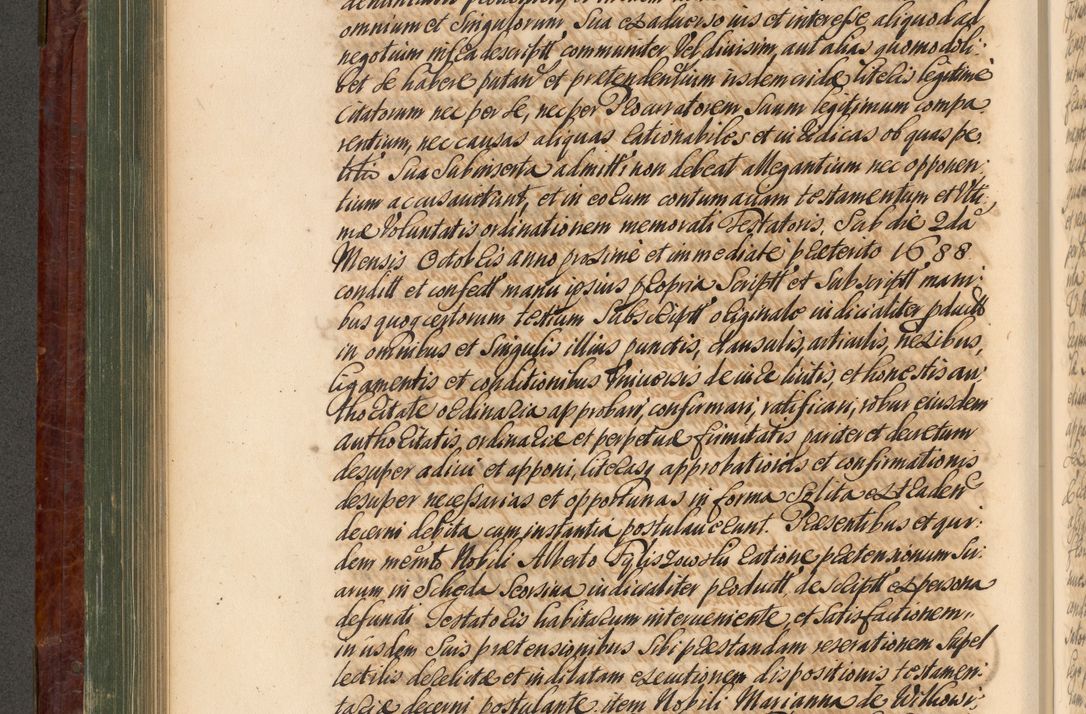 omnium et Singulorum Sua ex adverso ius et interesse aliquod ad
negotium infra descriptt communiter vel divisim, aut alias quomodoli:
bet se habere putan et prætendentium iisdem eidem literis legitime
citatorum nec per se, nec per Procuratorem Suum legitimum compa
rentium, nec causas aliquas rationabiles et iuridicas ob quas pe
titio Sua Subinserta admitti non debeat allegantium nec opponen:
tium accusaverunt, et in eorum contumaciam testamentum et Ulti:
mæ Voluntatis ordinationem memorati Testatoris, Sub die 2da
Mensis Octobris anno proxime et immediate præterito 1688
conditt et confectt manu ipsius propria Scriptt et Subscriptt mani:
bus quoq certorum testium Subscriptt originale iudicialiter producitt
in omnibus et Singulis illius punctis, clausulis, articulis, nexibus,
ligamentis et conditionibus Universis de iure licitis, et honestis au:
thoritate ordinaria approbari, confirmari, ratificari, robur eiusdem
authoritatis, ordinariæ et perpetuæ firmitatis pariter et decretum
desuper adiici et apponi, literasq approbatiois et confirmationis
desuper necessarias et opportunas in forma Solita extradendas
decerni debita cum instantia postulaverunt. Præsentibus et qui:
dem memto Nobili Alberto ratione prætensionum Su:
arum in Scheda Seorsiva iudicialiter productt descriptt ex persona
defuncti Testatoris habitarum interveniente, et Satisfactionem,
in iisdem Suis prætensionibus Sibi præstandam reserationem Supel
lectilis derelictæ et indilatam executionem dispositionis testamen:
tariæ decerni postulante. item Nobili Marianna de Witkowi: